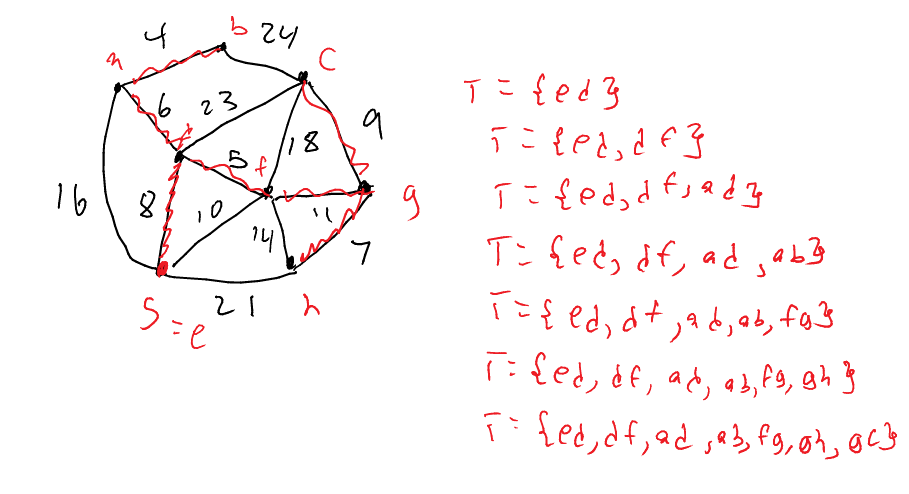 4
b
24
C
a
6
23
9
5
f
18
16
8
10
11
g
14
7
S = e
21
h
T = {ed}
T = {ed, df}
T = {ed, df, ad}
T = {ed, df, ad, ab}
T = {ed, df, ad, ab, fg}
T = {ed, df, ad, ab, fg, gh}
T = {ed, df, ad, ab, fg, gh, gc}